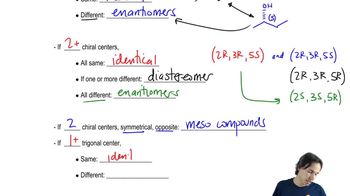 • Different: enantiomers
OH
(S)
- If 2+ chiral centers,
• All same: identical
(2R, 3R, 5S) and (2R, 3R, 5S)
• If one or more different: diastereomer
(2R, 3R, 5R)
• All different: enantiomers
(2S, 3S, 5R)
- If 2 chiral centers, symmetrical, opposite: meso compounds
- If 1+ trigonal center,
• Same: identi
• Different: